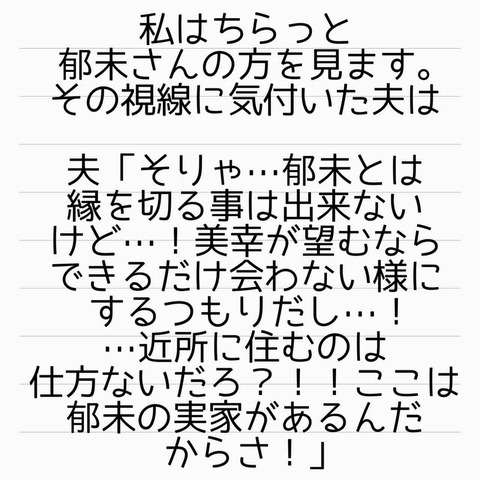 私はちらっと
郁未さんの方を見ます。
その視線に気付いた夫は
夫「そりゃ…郁未とは
縁を切る事は出来ない
けど…！美幸が望むなら
できるだけ会わない様に
するつもりだし…！
…近所に住むのは
仕方ないだろ？！！ここは
郁未の実家があるんだ
からさ！」